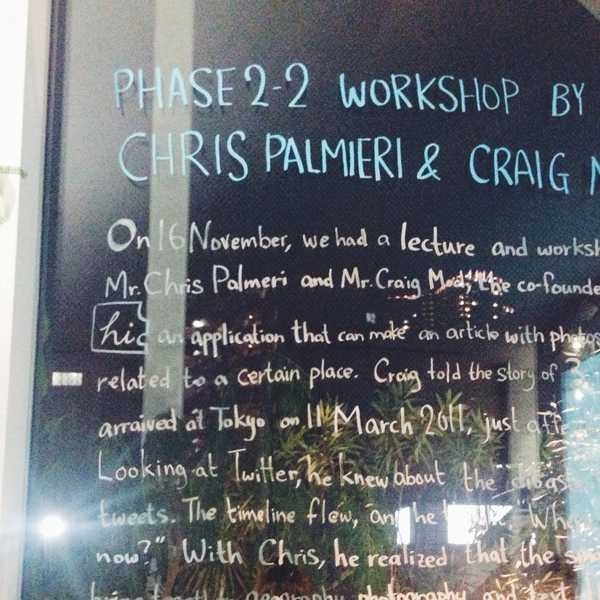 PHASE 2-2 WORKSHOP BY
CHRIS PALMIERI & CRAIG M
On 16 November, we had a lecture and worksh
Mr. Chris Palmeri and Mr. Craig Mod, the co-founde
hi an application that can make an article with photos
related to a certain place. Craig told the story of
arraived at Tokyo on 11 March 2011, just afte
Looking at Twitter, he knew about the disast
tweets. The timeline flew, and he
now?" With Chris, he realized that the
geography, photography and text